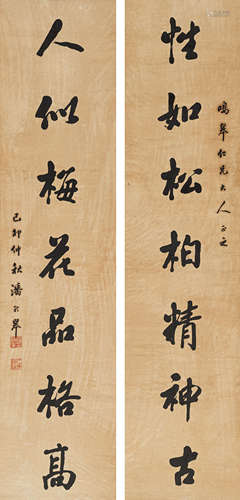 性如松柏精神古
鳴皋仁兄大人正之
人似梅花品格高
己卯仲秋潘